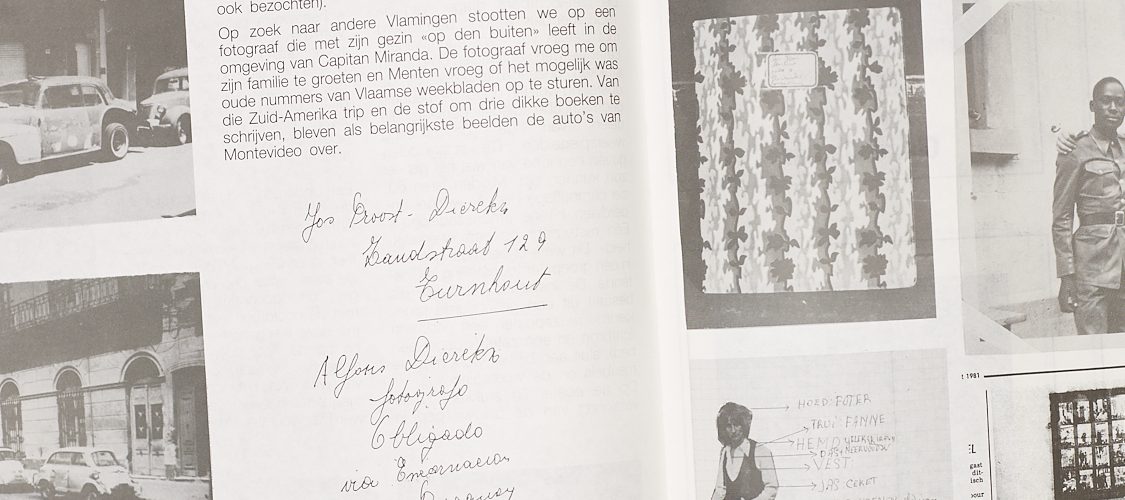 ook bezochten).
Op zoek naar andere Vlamingen stootten we op een
fotograaf die met zijn gezin «op den buiten» leeft in de
omgeving van Capitan Miranda. De fotograaf vroeg me om
zijn familie te groeten en Menten vroeg of het mogelijk was
oude nummers van Vlaamse weekbladen op te sturen. Van
die Zuid-Amerika trip en de stof om drie dikke boeken te
schrijven, bleven als belangrijkste beelden de auto's van
Montevideo over.
Jos Proost - Dierckx
Zandstraat 129
Turnhout
Alfons Dierckx
fotografo
Obligado
via Encarnacion
HOED: POTER
TRUI: FANNYE
HEMD
VEST
JAS CEKET
t 1981
EL
gast
dit-
isch
pour